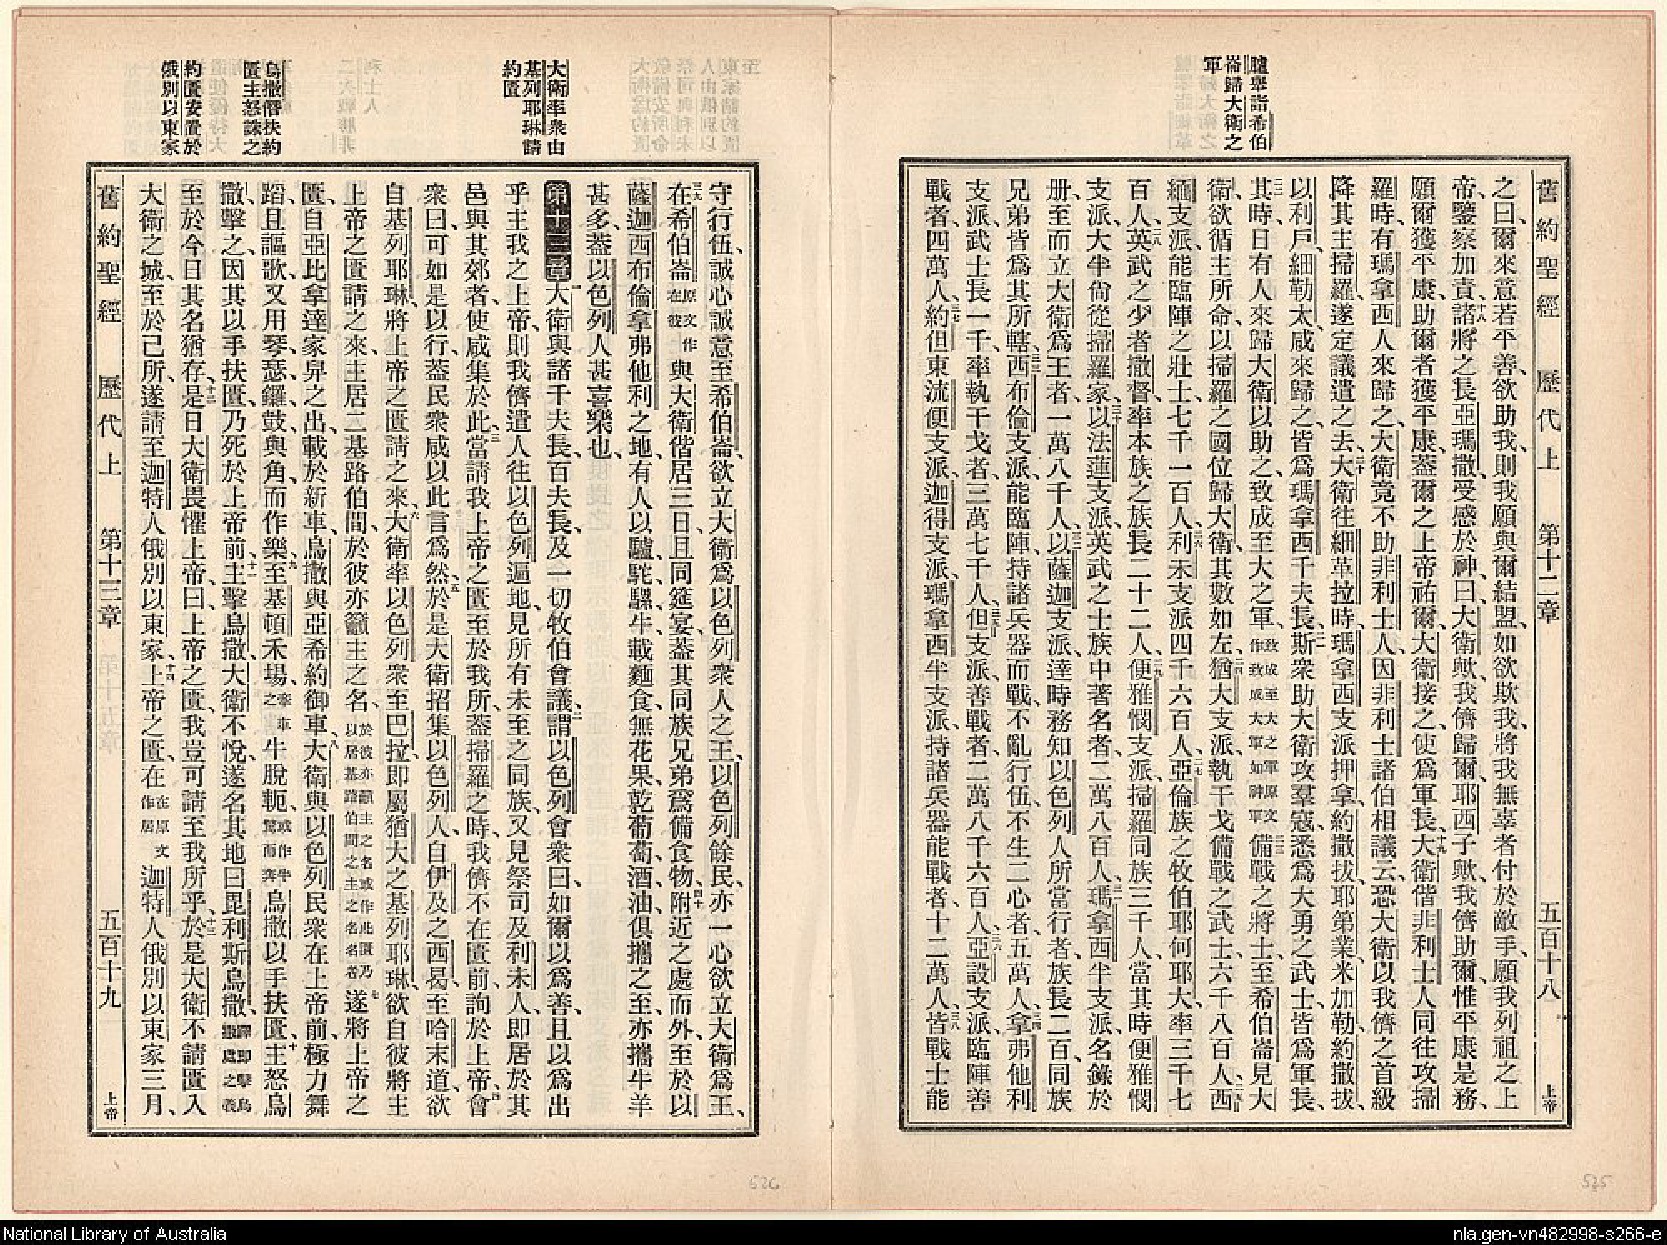 臚舉詣希伯
崙歸大衛之
軍
舊約聖經 歷代上 第十二章 五百十八 上帝
之曰、爾來意若平善、欲助我、則我願與爾結盟、如欲欺我、將我無辜者付於敵手、願我列祖之上
帝、鑒察加責、諸將之長亞瑪撒、受感於神曰、大衛歟、我儕歸爾、耶西子歟、我儕助爾、惟平康是務、
願爾獲平康、助爾者獲平康、蓋爾之上帝祐爾、大衛接之、使爲軍長、大衛偕非利士人同往攻掃
羅時、有瑪拿西人來歸之、大衛竟不助非利士人、因非利士諸伯相議云、恐大衛以我儕之首級
降其主掃羅、遂定議遣之去、大衛往細革拉時、瑪拿西支派押拿、約撒拔、耶第業、米加勒、約撒拔、
以利戶、細勒太、咸來歸之、皆爲瑪拿西千夫長、斯衆助大衛攻羣寇、悉爲大勇之武士、皆爲軍長、
其時、日有人來歸大衛以助之、致成至大之軍、致成至大之軍原文作致成大軍如神軍 備戰之將士、至希伯崙見大
衛、欲循主所命、以掃羅之國位歸大衛、其數如左、猶大支派、執干戈備戰之武士六千八百人、西
緬支派、能臨陣之壯士七千一百人、利未支派四千六百人、亞倫族之牧伯耶何耶大、率三千七
百人、英武之少者撒督、率本族之族長二十二人、便雅憫支派、掃羅同族三千人、當其時便雅憫
支派、大半尙從掃羅家、以法蓮支派、英武之士、族中著名者、二萬八百人、瑪拿西半支派、名錄於
册、至而立大衛爲王者、一萬八千人、以薩迦支派、達時務、知以色列人所當行者、族長二百、同族
兄弟皆爲其所轄、西布倫支派、能臨陣、持諸兵器而戰、不亂行伍、不生二心者、五萬人、拿弗他利
支派、武士長一千、率執干戈者、三萬七千人、但支派、善戰者、二萬八千六百人、亞設支派、臨陣善
戰者、四萬人、約但東、流便支派、迦得支派、瑪拿西半支派、持諸兵器能戰者、十二萬人、皆戰士、能
大衛率衆由
基列耶琳請
約匱
烏撒督扶約
匱主怒誅之
約匱安置於
俄別以東家
守行伍、誠心誠意至希伯崙、欲立大衛爲以色列衆人之王、以色列餘民、亦一心欲立大衛爲王、
在希伯崙、原文作在彼 與大衛偕居三日、且同筵宴、蓋其同族兄弟、爲備食物、附近之處而外、至於以
薩迦西布倫拿弗他利之地、有人以驢、駝、騾、牛、載麵食、無花果、乾葡萄、葡萄酒、油、俱攜之至、亦攜牛羊
甚多、蓋以色列人甚喜樂也、
第十三章 大衛與諸千夫長、百夫長、及一切牧伯會議、謂以色列會衆曰、如爾以爲善、且以爲出
乎主我之上帝、則我儕遣人往以色列遍地、見所有未至之同族、又見祭司及利未人、卽居於其
邑與其郊者、使咸集於此、當請我上帝之匱至於我所、蓋掃羅之時、我儕不在匱前詢於上帝、會
衆曰、可如是以行、蓋民衆咸以此言爲然、於是大衛招集以色列人、自伊及之西曷、至哈末道、欲
自基列耶琳、將上帝之匱請之來、大衛率以色列衆至巴拉、卽屬猶大之基列耶琳、欲自彼將主
上帝之匱請之來、主居二基路伯間、於彼亦籲主之名、於彼亦籲主之名或作此匱乃以居基路伯間之主之名名者 遂將上帝之
匱、自亞比拿達家舁之出、載於新車、烏撒與亞希約御車、大衛與以色列民衆、在上帝前、極力舞
蹈、且謳歌、又用琴、瑟、鑼、鼓、與角、而作樂、至基頓禾場、牽車之 牛脫軛、或作牛驚而奔 烏撒以手扶匱、主怒烏
撒、擊之、因其以手扶匱、乃死於上帝前、主擊烏撒、大衛不悅、遂名其地曰毘利斯烏撒、譯卽擊烏撒處之義
至於今日、其名猶存、是日大衛畏懼上帝、曰、上帝之匱、我豈可請至我所乎、於是大衛不請匱入
大衛之城、至於己所、遂請至迦特人俄別以東家、上帝之匱、在在原文作居 迦特人俄別以東家三月、
舊約聖經 歷代上 第十三章 五百十九 上帝
526
525
National Library of Australia
nla.gen-vn482998-s266-e